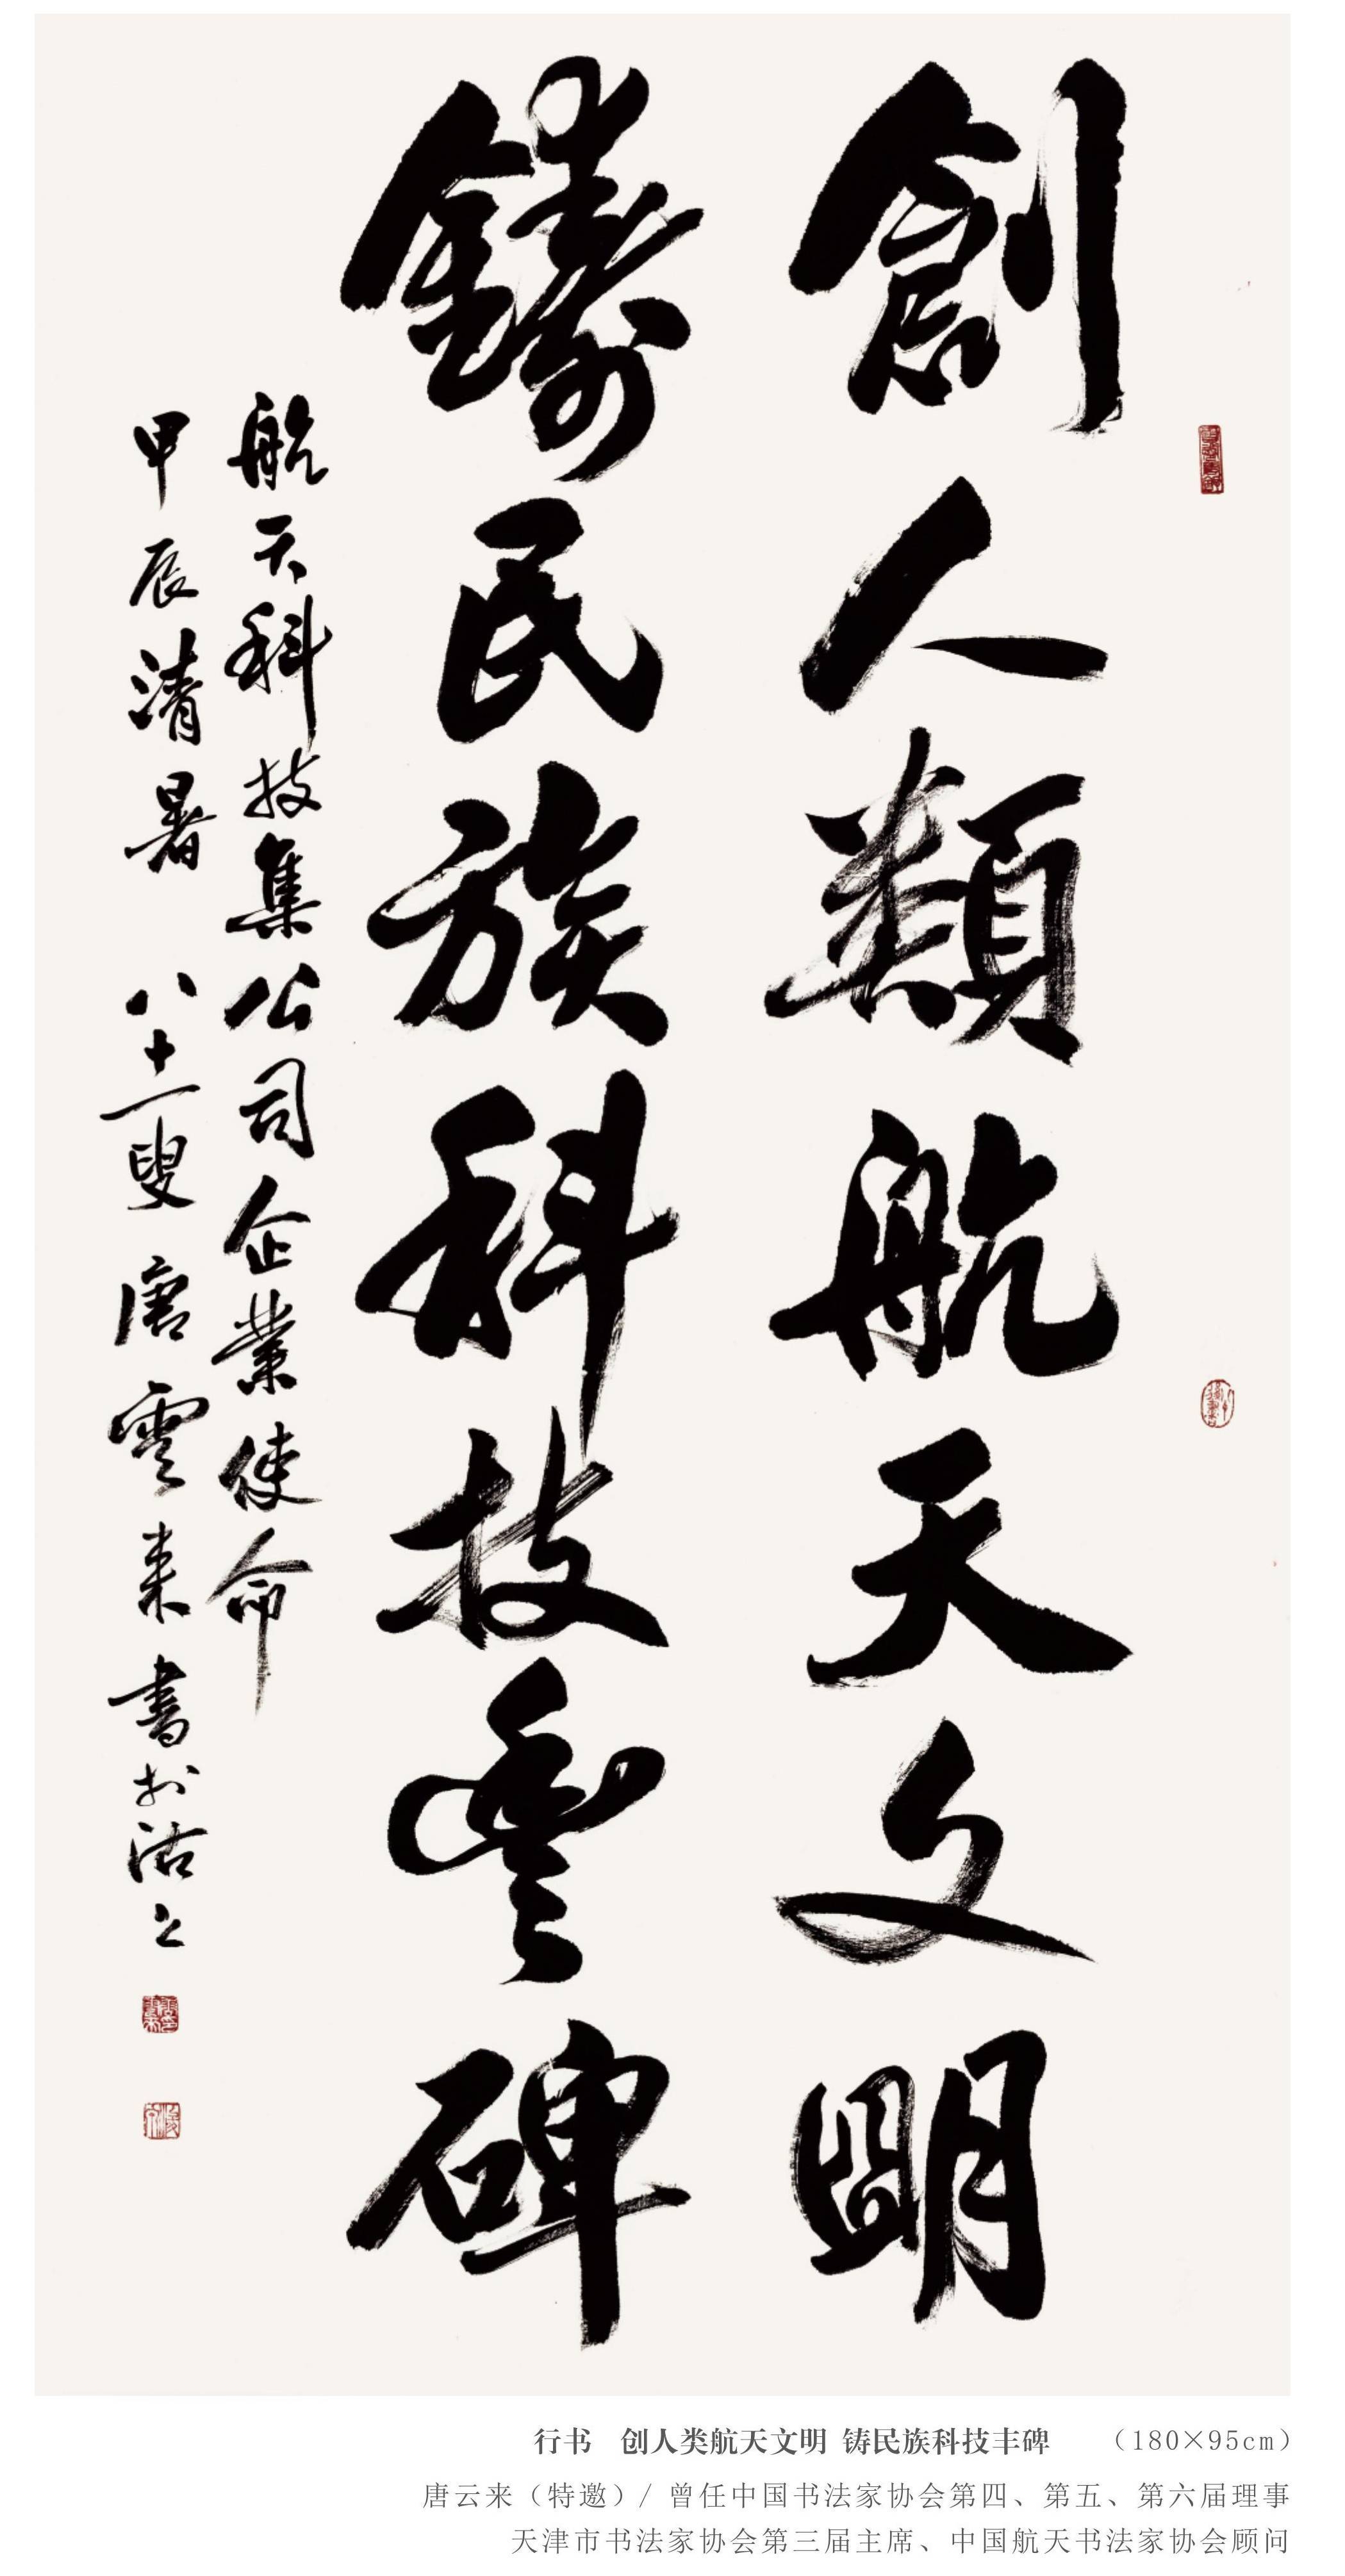 創人類航天文明
鑄民族科技豐碑
航天科技集公司企業使命
甲辰清暑 八十一叟 唐雲来書於沽上
行书 创人类航天文明 铸民族科技丰碑 （180×95cm）
唐云来（特邀）/ 曾任中国书法家协会第四、第五、第六届理事
天津市书法家协会第三届主席、中国航天书法家协会顾问